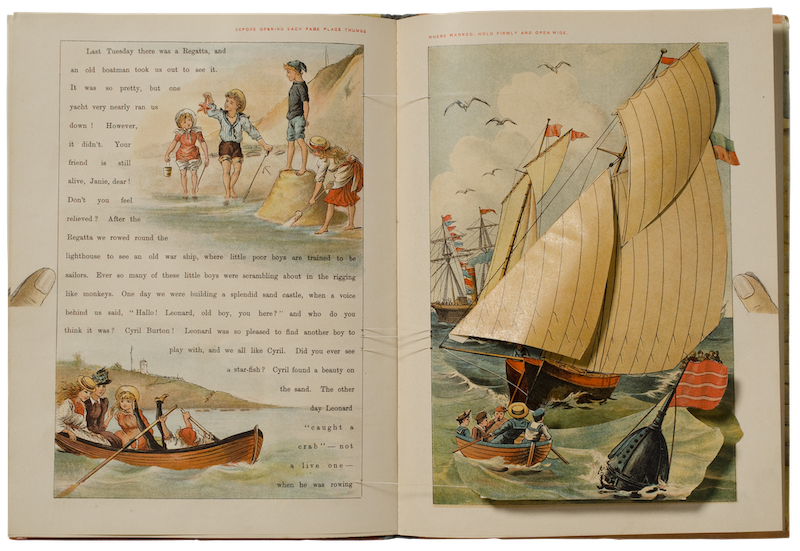 BEFORE OPENING EACH PAGE PLACE THUMBS
WHERE MARKED, HOLD FIRMLY AND OPEN WIDE.
Last Tuesday there was a Regatta, and
an old boatman took us out to see it.
It was so pretty, but one
yacht very nearly ran us
down! However,
it didn't. Your
friend is still
alive, Janie, dear!
Don't you feel
relieved? After the
Regatta we rowed round the
lighthouse to see an old war ship, where little poor boys are trained to be
sailors. Ever so many of these little boys were scrambling about in the rigging
like monkeys. One day we were building a splendid sand castle, when a voice
behind us said, "Hallo! Leonard, old boy, you here?" and who do you
think it was? Cyril Burton! Leonard was so pleased to find another boy to
play with, and we all like Cyril. Did you ever see
a star-fish? Cyril found a beauty on
the sand. The other
day Leonard
"caught a
crab"—not
a live one—
when he was rowing